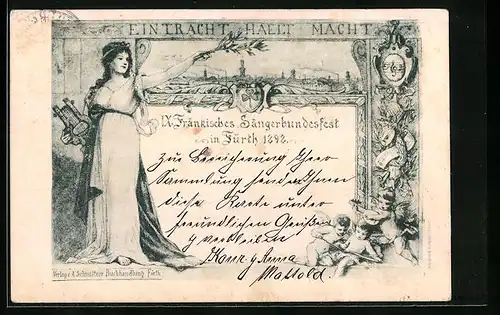 EINTRACHT HAELT MACHT
IX. Fränkisches Sängerbundesfest
in Fürth 1898.
Zur Bereicherung Ihrer
Sammlung sende Ihnen
diese Karte unter
freundlichen Grüßen
verbleiben
Anna
Verlag v. A. Schmittner Buchhandlung Fürth